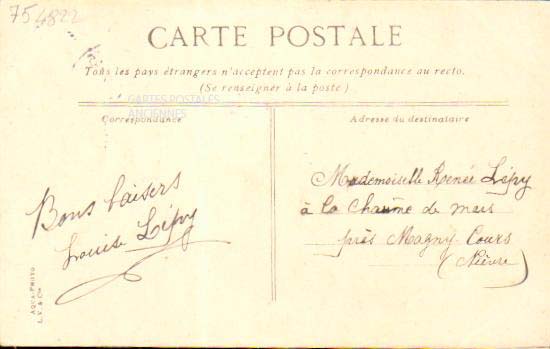 75 4822
CARTE POSTALE
Tous les pays étrangers n'acceptent pas la correspondance au recto.
(Se renseigner à la poste)
CARTES POSTALES
ANCIENNES
Correspondance
Bons baisers
Louise Lépy
AQUA-PHOTO
L.V. & Cie
Adresse du destinataire
Mademoiselle Renée Lépy
à la Chaume de mars
près Magny-Cours
(Nièvre)